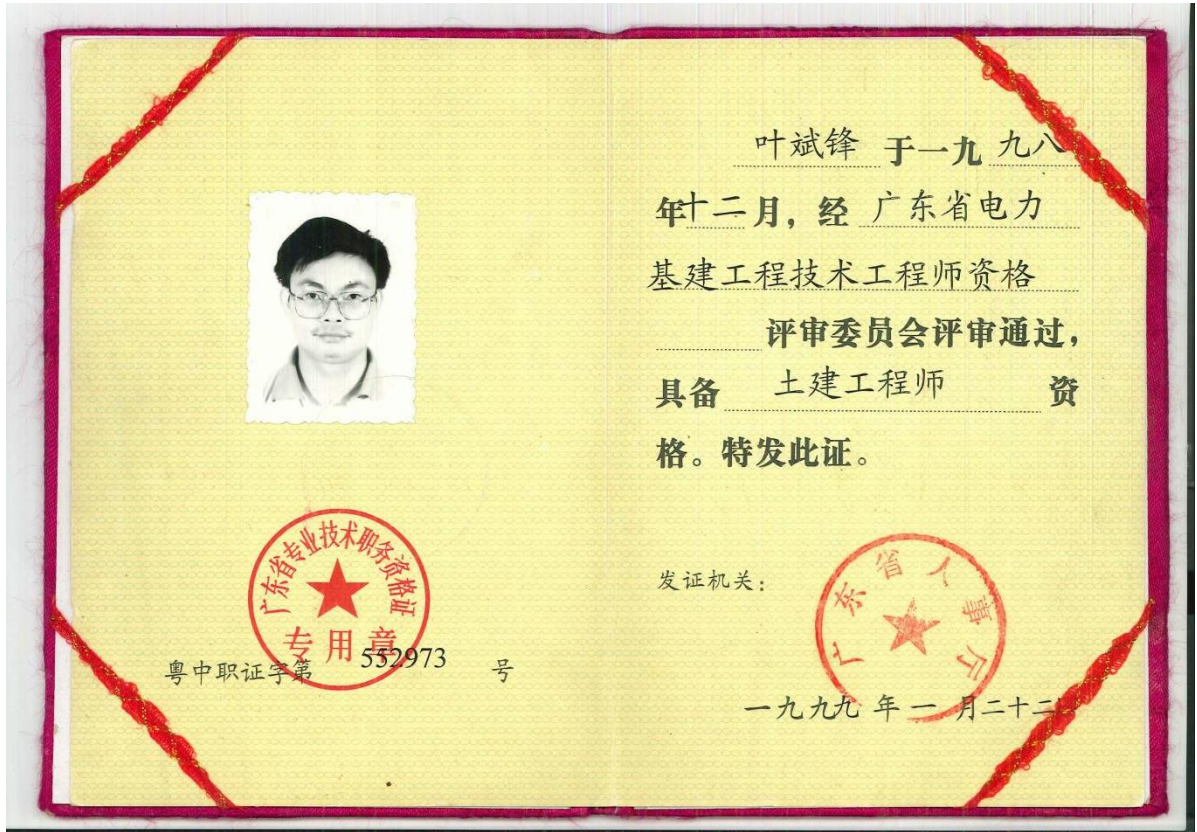 广东省专业技术职务资格证
专用章
粤中职证字第 552973 号
叶斌锋 于一九 九八
年十二月，经 广东省电力
基建工程技术工程师资格
评审委员会评审通过，
具备 土建工程师 资
格。特发此证。
发证机关：
广东省人事厅
一九九九年一月二十二